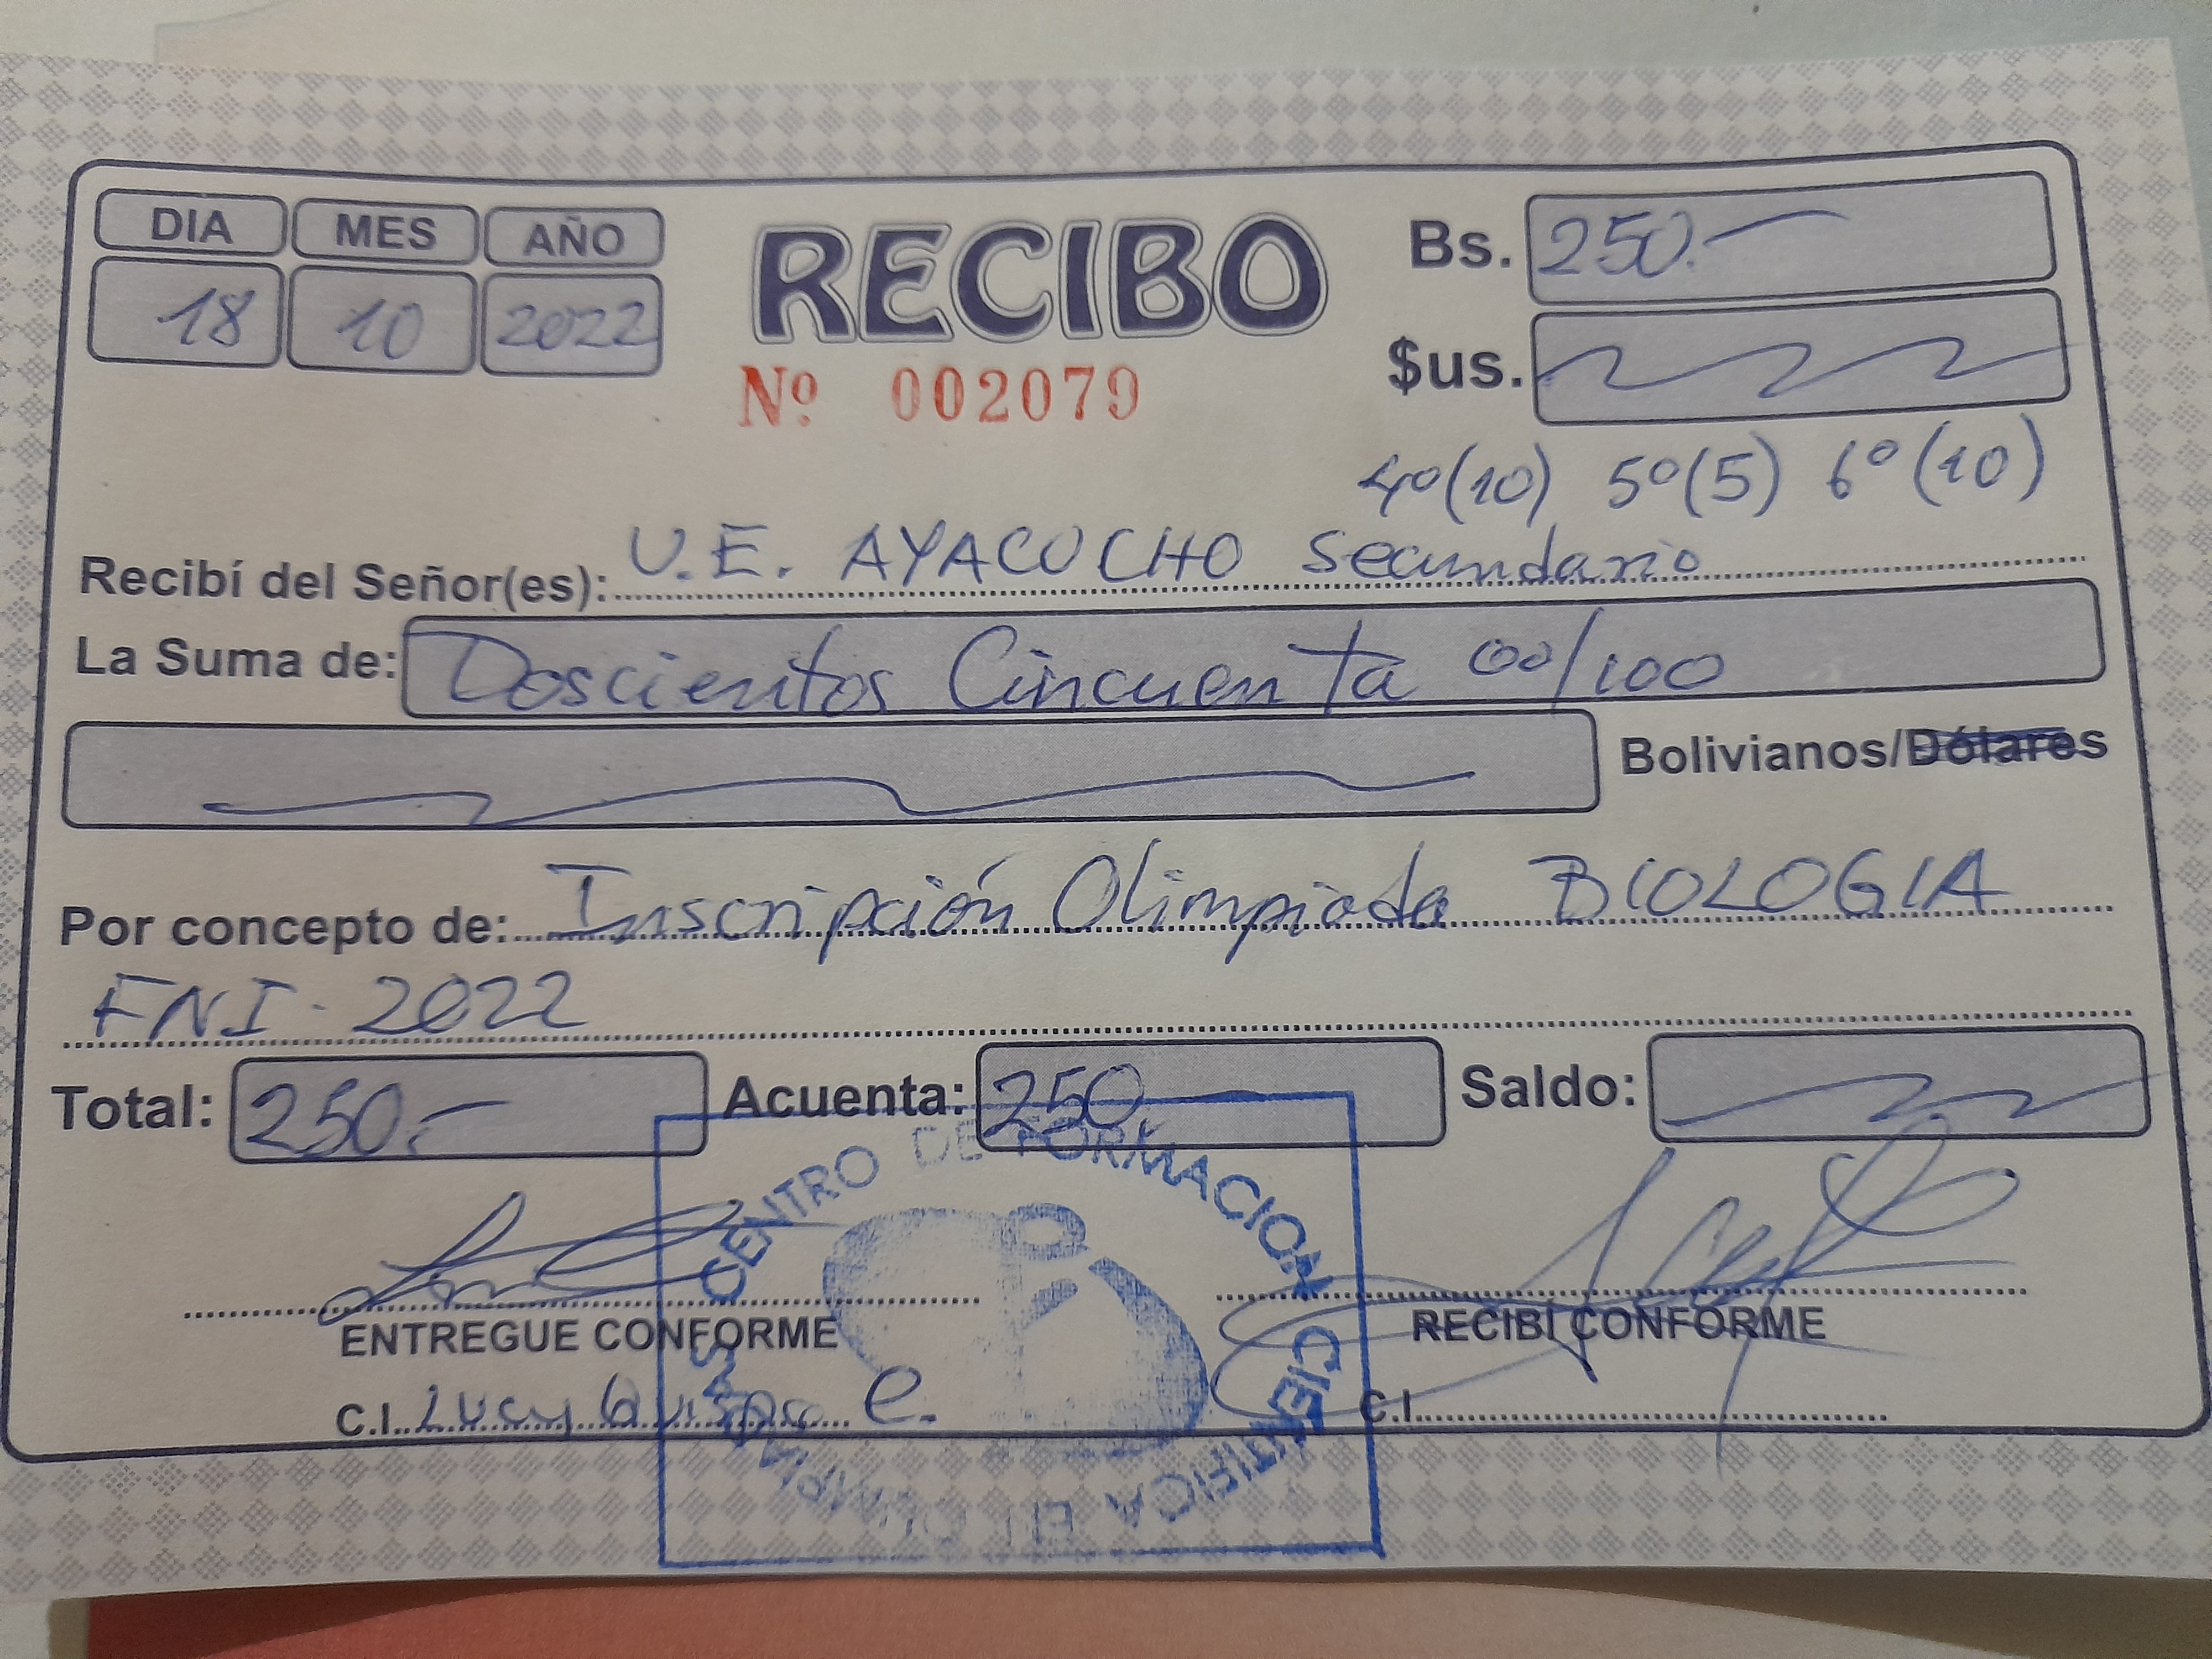 DIA MES AÑO
18 10 2022
RECIBO
Nº 002079
Bs. 250.-
$us.
4º(10) 5º(5) 6º(10)
Recibí del Señor(es): U.E. AYACUCHO secundario
La Suma de: Doscientos Cincuenta 00/100
Bolivianos/Dólares
Por concepto de: Inscripción Olimpiada BIOLOGIA
FNI-2022
Total: 250.- Acuenta: 250.- Saldo:
ENTREGUE CONFORME
RECIBI CONFORME
C.I.
C.I.
CENTRO DE FORMACIÓN
CIENTIFICA